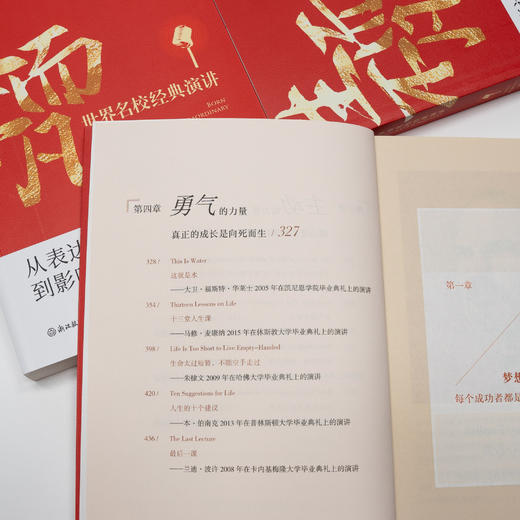 世界名校经典演讲
BORN
从表达
到影
第四章 勇气的力量
真正的成长是向死而生 / 327
328 / This Is Water
这就是水
——大卫·福斯特·华莱士 2005 年在凯尼恩学院毕业典礼上的演讲
354 / Thirteen Lessons on Life
十三堂人生课
——马修·麦康纳 2015 年在休斯敦大学毕业典礼上的演讲
398 / Life Is Too Short to Live Empty-Handed
生命太过短暂，不能空手走过
——朱棣文 2009 年在哈佛大学毕业典礼上的演讲
420 / Ten Suggestions for Life
人生的十个建议
——本·伯南克 2013 年在普林斯顿大学毕业典礼上的演讲
436 / The Last Lecture
最后一课
——兰迪·波许 2008 年在卡内基梅隆大学毕业典礼上的演讲
第一章
梦想
每个成功者都是